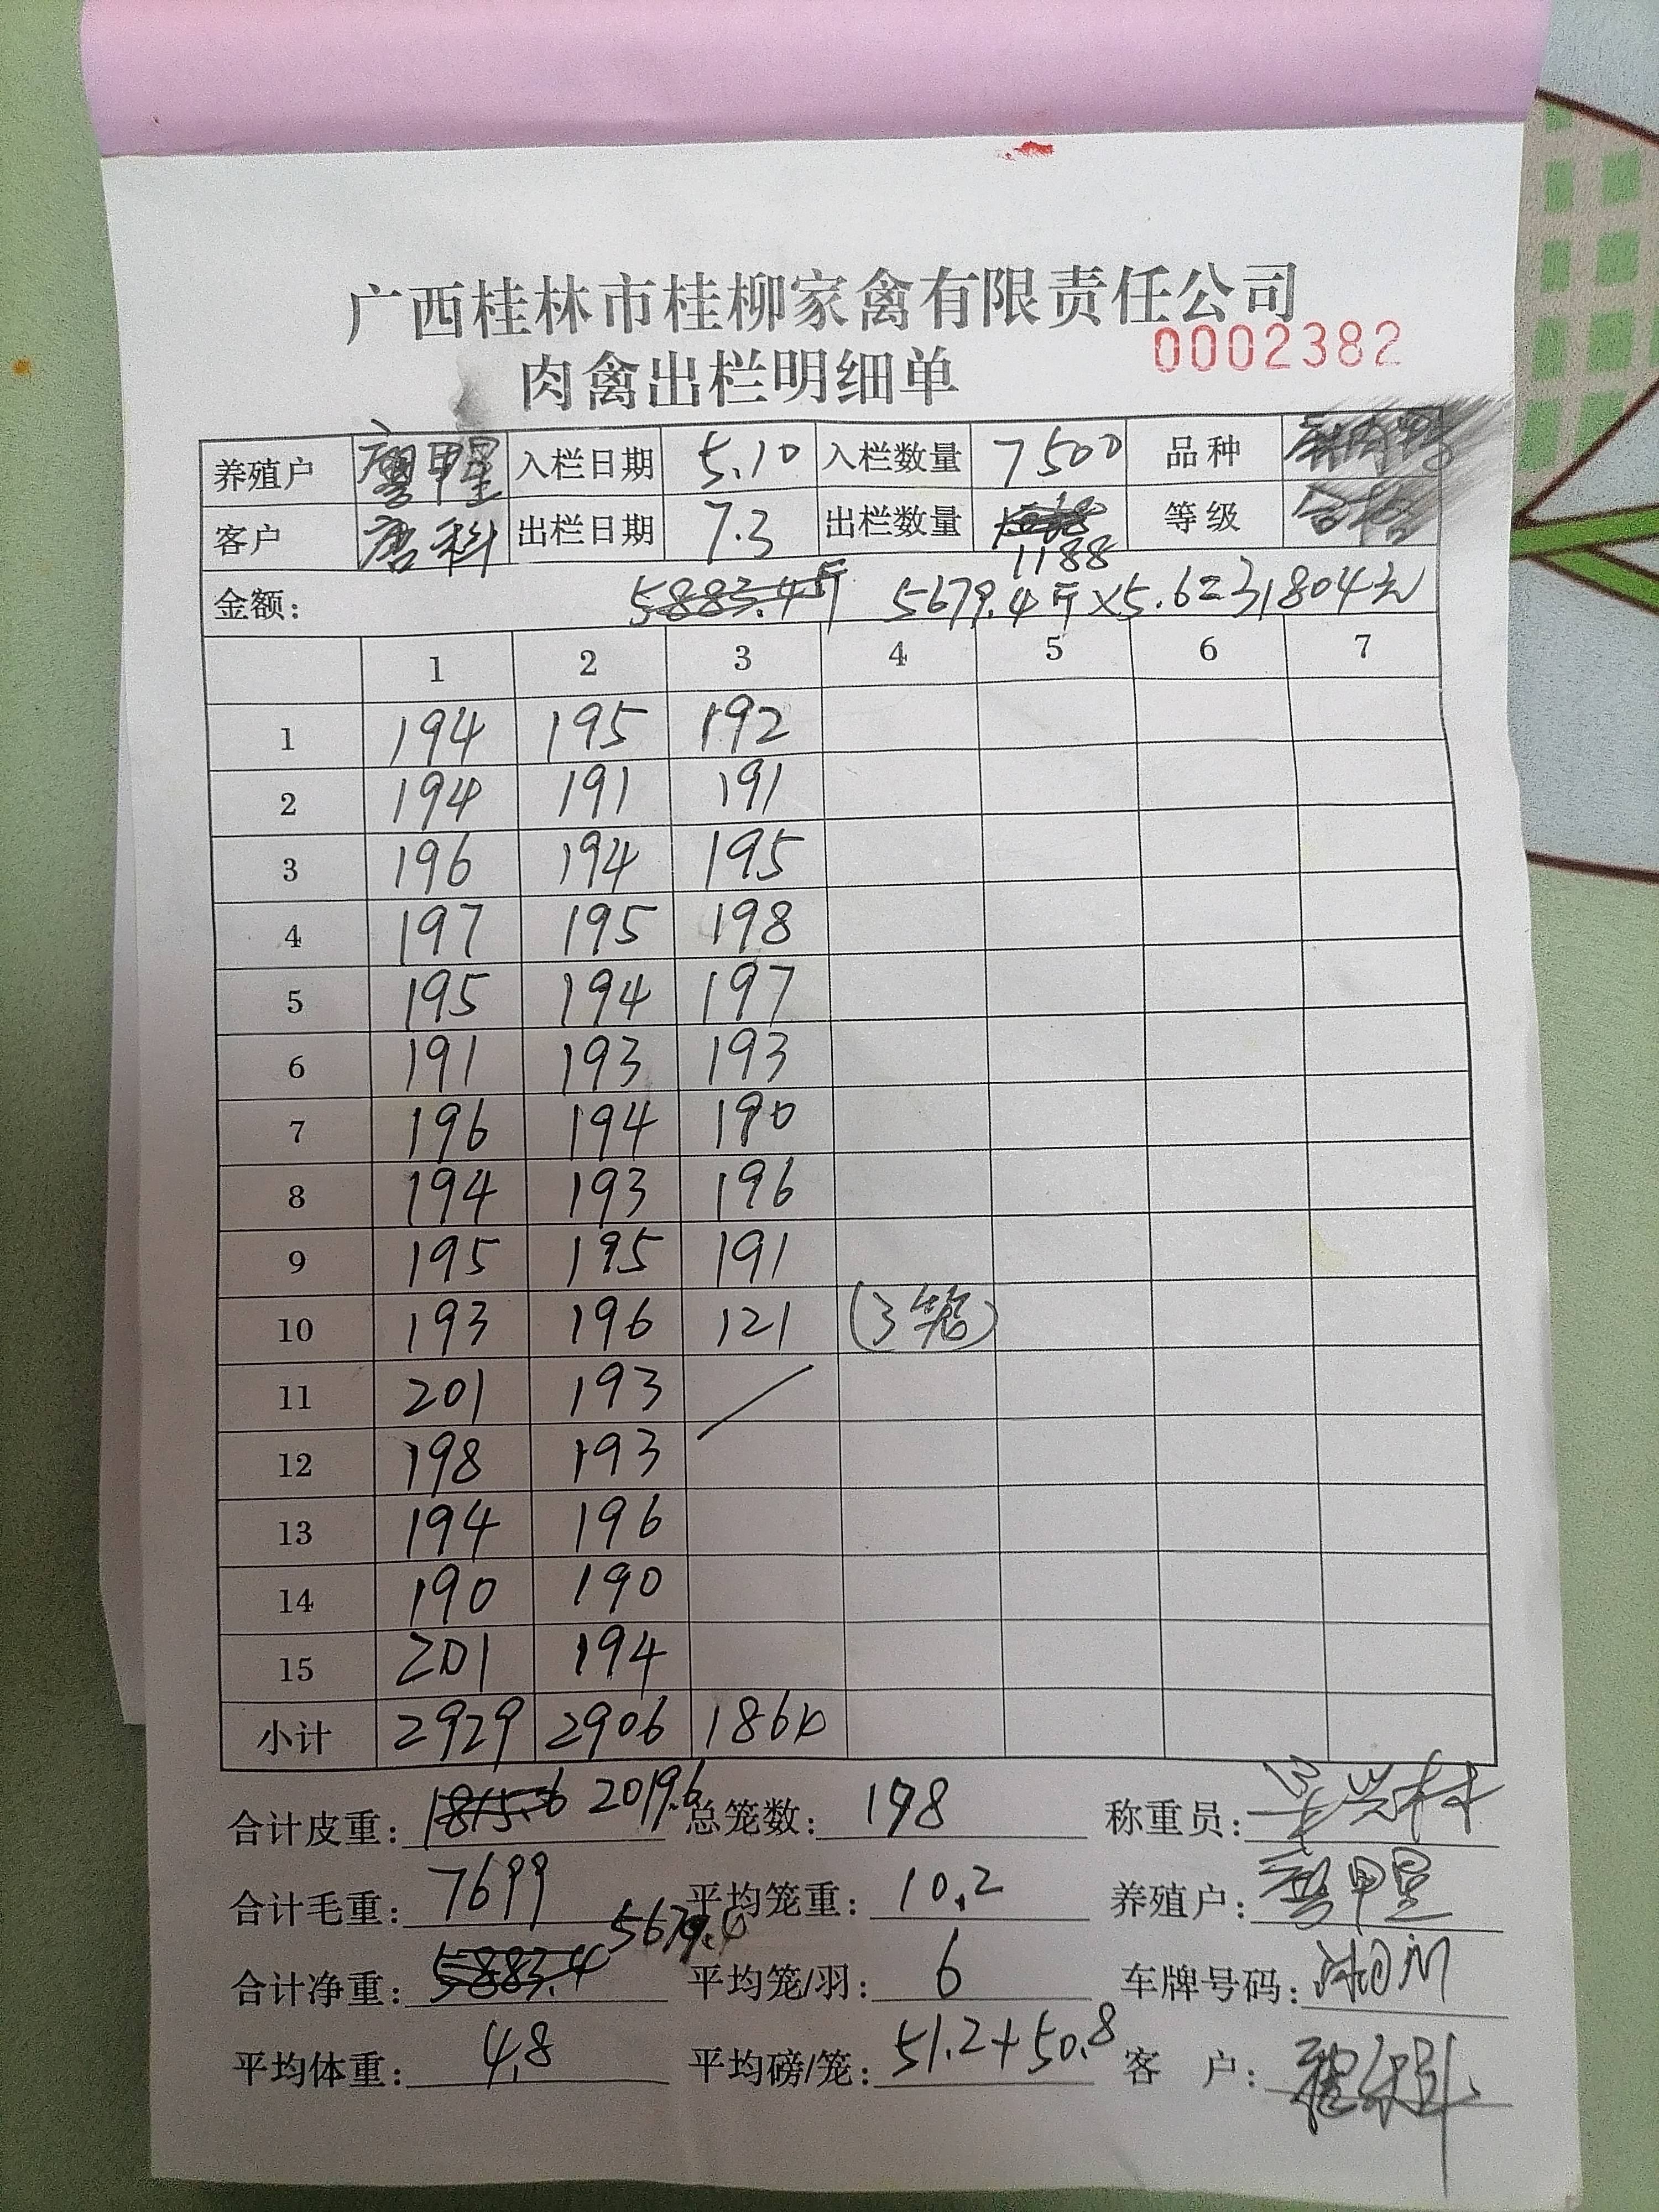 广西桂林市桂柳家禽有限责任公司
肉禽出栏明细单 0002382
养殖户 入栏日期 5.10 入栏数量 7500 品种
客户 唐科 出栏日期 7.3 出栏数量 1188 等级 合格
金额: 5883.4斤 5679.4斤×5.6=31804元
1 2 3 4 5 6 7
1 194 195 192
2 194 191 191
3 196 194 195
4 197 195 198
5 195 194 197
6 191 193 193
7 196 194 190
8 194 193 196
9 195 195 191
10 193 196 121 (3笼)
11 201 193
12 198 193
13 194 196
14 190 190
15 201 194
小计 2929 2906 1864
合计皮重: 1815.6 2019.6 总笼数: 198 称重员:
合计毛重: 7699 平均笼重: 10.2 养殖户:
合计净重: 5883.4 5679.4 平均笼/羽: 6 车牌号码:
平均体重: 4.8 平均磅/笼: 51.2+50.8 客 户: